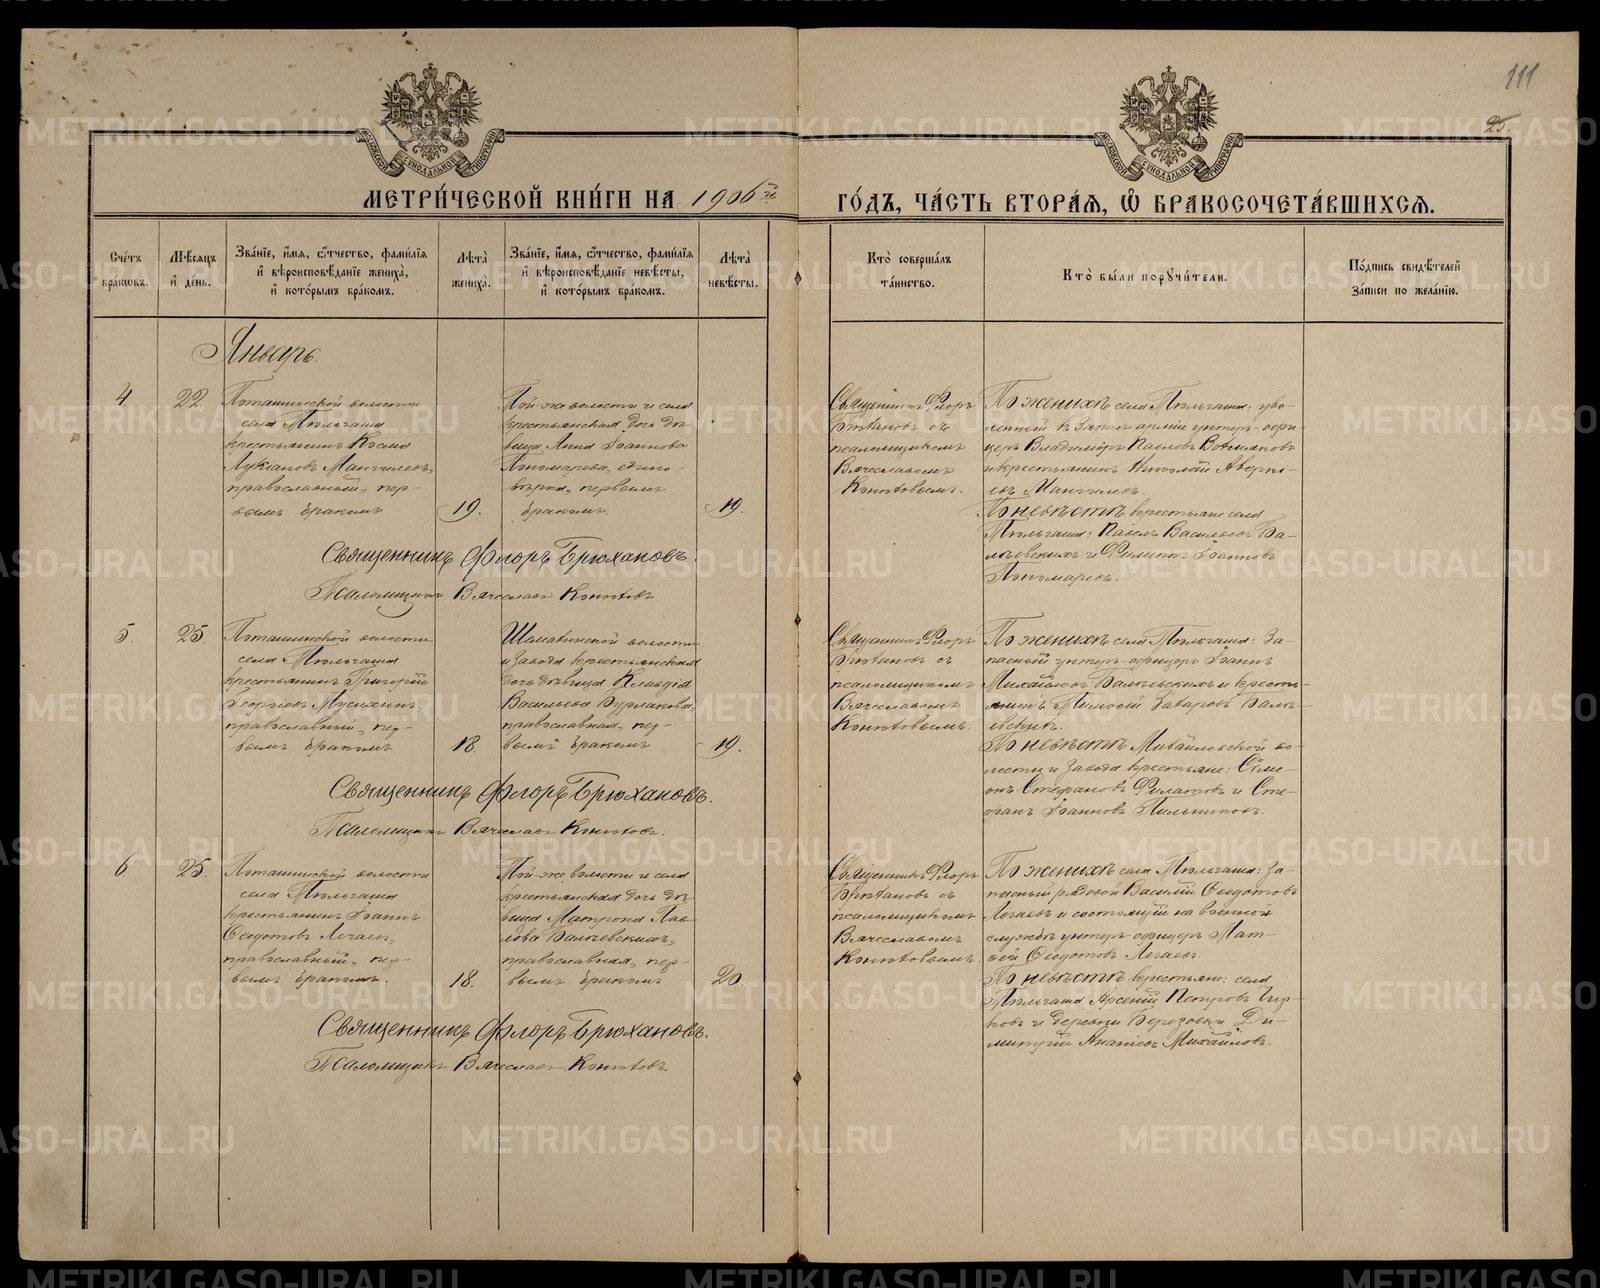 111
25.
МОСКОВСКОЙ СѴНОДАЛЬНОЙ ТИПОГРАФІИ
МОСКОВСКОЙ СѴНОДАЛЬНОЙ ТИПОГРАФІИ
МЕТРИ́ЧЕСКОЙ КНИ́ГИ НА 1906й
ГО́ДЪ, ЧА́СТЬ ВТОРА́Ѧ, Ѽ БРАКОСОЧЕТА́ВШИХСѦ.
Сче́тъ бра́кѡвъ.
Мѣ́сѧцъ и҆ де́нь.
Зва́нїе, и҆́мѧ, ѻ҆́тчество, фами́лїѧ и҆ вѣроисповѣ́данїе жениха̀, и҆ кото́рымъ бра́комъ.
Лѣта̀ жениха̀.
Зва́нїе, и҆́мѧ, ѻ҆́тчество, фами́лїѧ и҆ вѣроисповѣ́данїе невѣ́сты, и҆ кото́рымъ бра́комъ.
Лѣта̀ невѣ́сты.
Кто̀ соверша́лъ та́инство.
Кто̀ бы́ли порꙋчи́тели.
По́дпись свидѣ́телей за́писи по жела́нїю.
Январь.
4
22
Поташинской волости
села Тюльгаша
крестьянинъ Косма
Лукіановъ Мангилевъ,
православный, пер-
вымъ бракомъ
19.
Той-же волости и села
крестьянская дочь дѣ-
вица Анна Іоаннова
Пономарева, едино-
вѣрка, первымъ
бракомъ.
19.
Священникъ Флоръ
Брюхановъ съ
псаломщикомъ
Вячеславомъ
Конюховымъ.
По женихѣ села Тюльгаша: уво-
ленный въ запасъ арміи унтеръ-офи-
церъ Владиміръ Павловъ
и крестьянинъ Николай Аверкі-
евъ Мангилевъ.
По невѣстѣ крестьяне села
Тюльгаша: Павелъ Васильевъ Ба-
лѣевскихъ и Филиппъ Іоанновъ
Пономаревъ.
Священникъ Флоръ Брюхановъ.
Псаломщикъ Вячеславъ Конюховъ.
5.
25.
Поташинской волости
села Тюльгаша
крестьянинъ Григорій
Георгіевъ Мусихинъ,
православный, пер-
вымъ бракомъ
18.
Шемахинской волости
и завода крестьянская
дочь дѣвица Клавдія
Васильева Бурмакова,
православная, пер-
вымъ бракомъ
19.
Священникъ Флоръ
Брюхановъ съ
псаломщикомъ
Вячеславомъ
Конюховымъ.
По женихѣ села Тюльгаша: за-
пасный унтеръ-офицеръ Іоаннъ
Михайловъ Балѣевскихъ и кресть-
янинъ Тимофей Захаровъ Балѣ-
евскихъ.
По невѣстѣ Михайловской во-
лости и завода крестьяне: Симе-
онъ Стефановъ Филатовъ и Сте-
фанъ Іоанновъ Пильниковъ.
Священникъ Флоръ Брюхановъ.
Псаломщикъ Вячеславъ Конюховъ.
6
25.
Поташинской волости
села Тюльгаша
крестьянинъ Іоаннъ
Ѳеодотовъ Легаевъ,
православный, пер-
вымъ бракомъ.
18.
Той-же волости и села
крестьянская дочь дѣ-
вица Матрона Пав-
лова Балѣевскихъ,
православная, пер-
вымъ бракомъ
20.
Священникъ Флоръ
Брюхановъ съ
псаломщикомъ
Вячеславомъ
Конюховымъ.
По женихѣ села Тюльгаша: за-
пасный рядовой Василій Ѳеодотовъ
Легаевъ и состоящій на военной
службѣ унтеръ-офицеръ Мат-
ѳей Ѳеодотовъ Легаевъ.
По невѣстѣ крестьяне: села
Тюльгаша Арсеній Петровъ Чир-
ковъ и деревни Березовки Ди-
митрій Ананіевъ Михайловъ.
Священникъ Флоръ Брюхановъ.
Псаломщикъ Вячеславъ Конюховъ.
METRIKI.GASO-URAL.RU